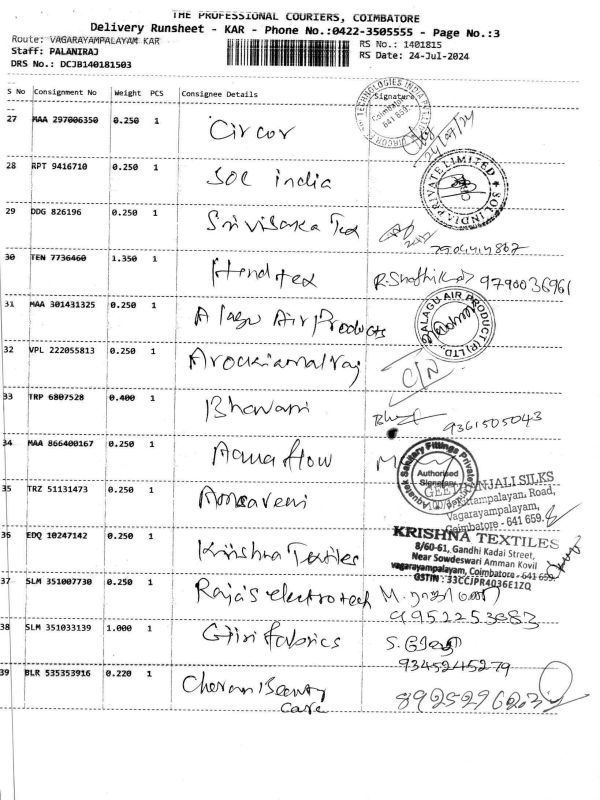 THE PROFESSIONAL COURIERS, COIMBATORE
Delivery Runsheet - KAR - Phone No.:0422-3505555 - Page No.:3
Route: VAGARAYAMPALAYAM KAR
RS No.: 1401815
Staff: PALANIRAJ
RS Date: 24-Jul-2024
DRS No.: DCJB140181503
S No Consignment No Weight PCS Consignee Details Signature
27 MAA 297006350 0.250 1 Circor
24/07/24
28 RPT 9416710 0.250 1 SOL india
SOL INDIA PRIVATE LIMITED
29 DDG 826196 0.250 1 Sri Visaka Tex
30 TEN 7736460 1.350 1 9790036961
31 MAA 301431325 0.250 1 Alagu Air Products
ALAGU AIR PRODUCT (P) LTD.
32 VPL 222055813 0.250 1 Arockiamalraj
C/N
33 TRP 6807528 0.400 1 Bhavani
9361505043
34 MAA 866400167 0.250 1 Aqua flow M
Aquatek Sanitary Fittings Private
Authorised
Signatory
35 TRZ 51131473 0.250 1
GEETHANJALI SILKS
Road,
Vagarayampalayam,
Coimbatore - 641 659.
36 EDQ 10247142 0.250 1 Krishna Textiles
KRISHNA TEXTILES
8/60-61, Gandhi Kadai Street,
Near Sowdeswari Amman Kovil
vagarayampalayam, Coimbatore - 641 659.
GSTIN : 33CCJPR4036E1ZQ
37 SLM 351007730 0.250 1 Raja's electrotech
9952253983
38 SLM 351033139 1.000 1 Giri fabrics
9345245279
39 BLR 535353916 0.220 1 Cheran Beauty
care